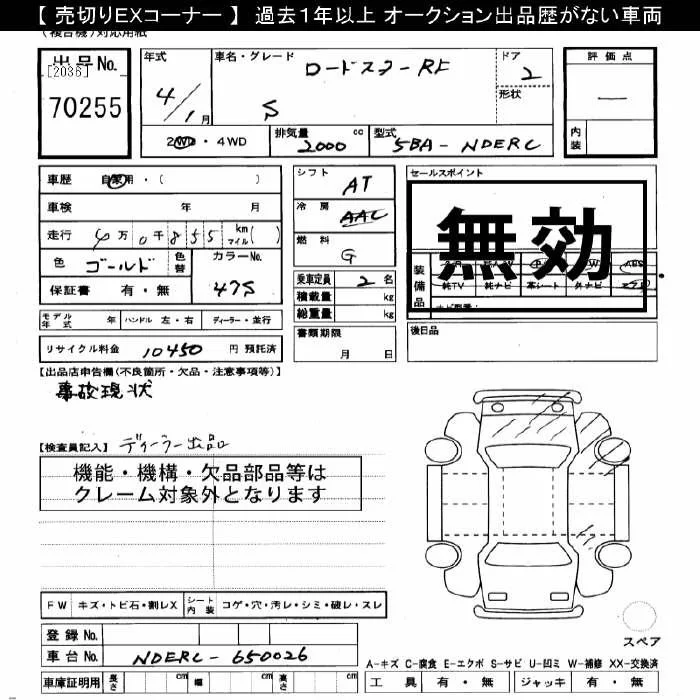 【 売切りEXコーナー 】 過去1年以上 オークション出品歴がない車両
(複合機)対応用紙
出品No.
[2036]
70255
年式
4/1月
車名・グレード
ロードスターRF
S
ドア
2
形状
評価点
—
内装
2WD・4WD
排気量 2000 cc
型式 5BA-NDERC
車歴 自家用・( )
車検 年 月
走行 4万0千855 km マイル( )
色 ゴールド
色替
カラーNo. 47S
保証書 有・無
シフト AT
冷房 AAC
燃料 G
乗車定員 2 名
積載量 kg
総重量 kg
書類期限
月 日
セールスポイント
無効
装備品
純TV 純ナビ 革シート 外ナビ
ABS
後日品
モデル年式 年 ハンドル 左・右 ディーラー・並行
リサイクル料金 10450 円 預託済
【出品店申告欄(不良箇所・欠品・注意事項等)】
事故現状
【検査員記入】 ディーラー出品
機能・機構・欠品部品等は
クレーム対象外となります
FW キズ・トビ石・割レX シート内装 コゲ・穴・汚レ・シミ・破レ・スレ
登録No.
車台No. NDERC-650026
車庫証明用 長さ cm 幅 cm 高さ cm
スペア
A-キズ C-腐食 E-エクボ S-サビ U-凹ミ W-補修 XX-交換済
工具 有・無 ジャッキ 有・無